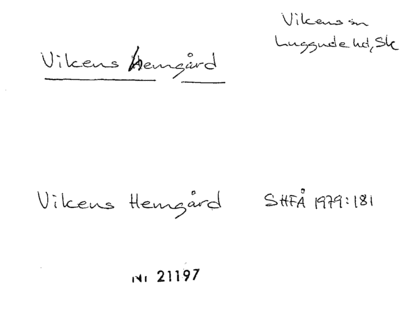 Vikens sn
Luggude hd, Sk
Vikens Hemgård
Vikens Hemgård SHFÅ 1979:181
NI 21197